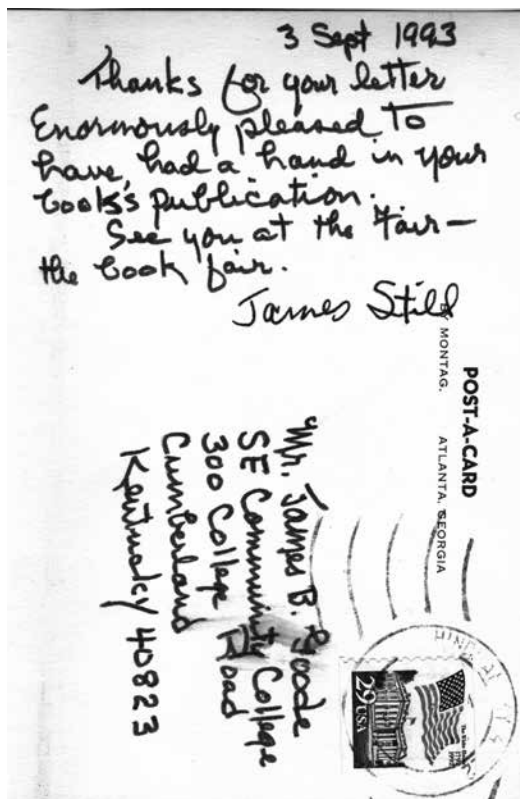 3 Sept 1993
Thanks for your letter
Enormously pleased to
have had a hand in your
book's publication.
See you at the Fair—
the book fair.
James Still
POST-A-CARD
BY MONTAG. ATLANTA, GEORGIA
Mr. James B. Goode
SE Community College
300 College Road
Cumberland
Kentucky 40823
29 USA